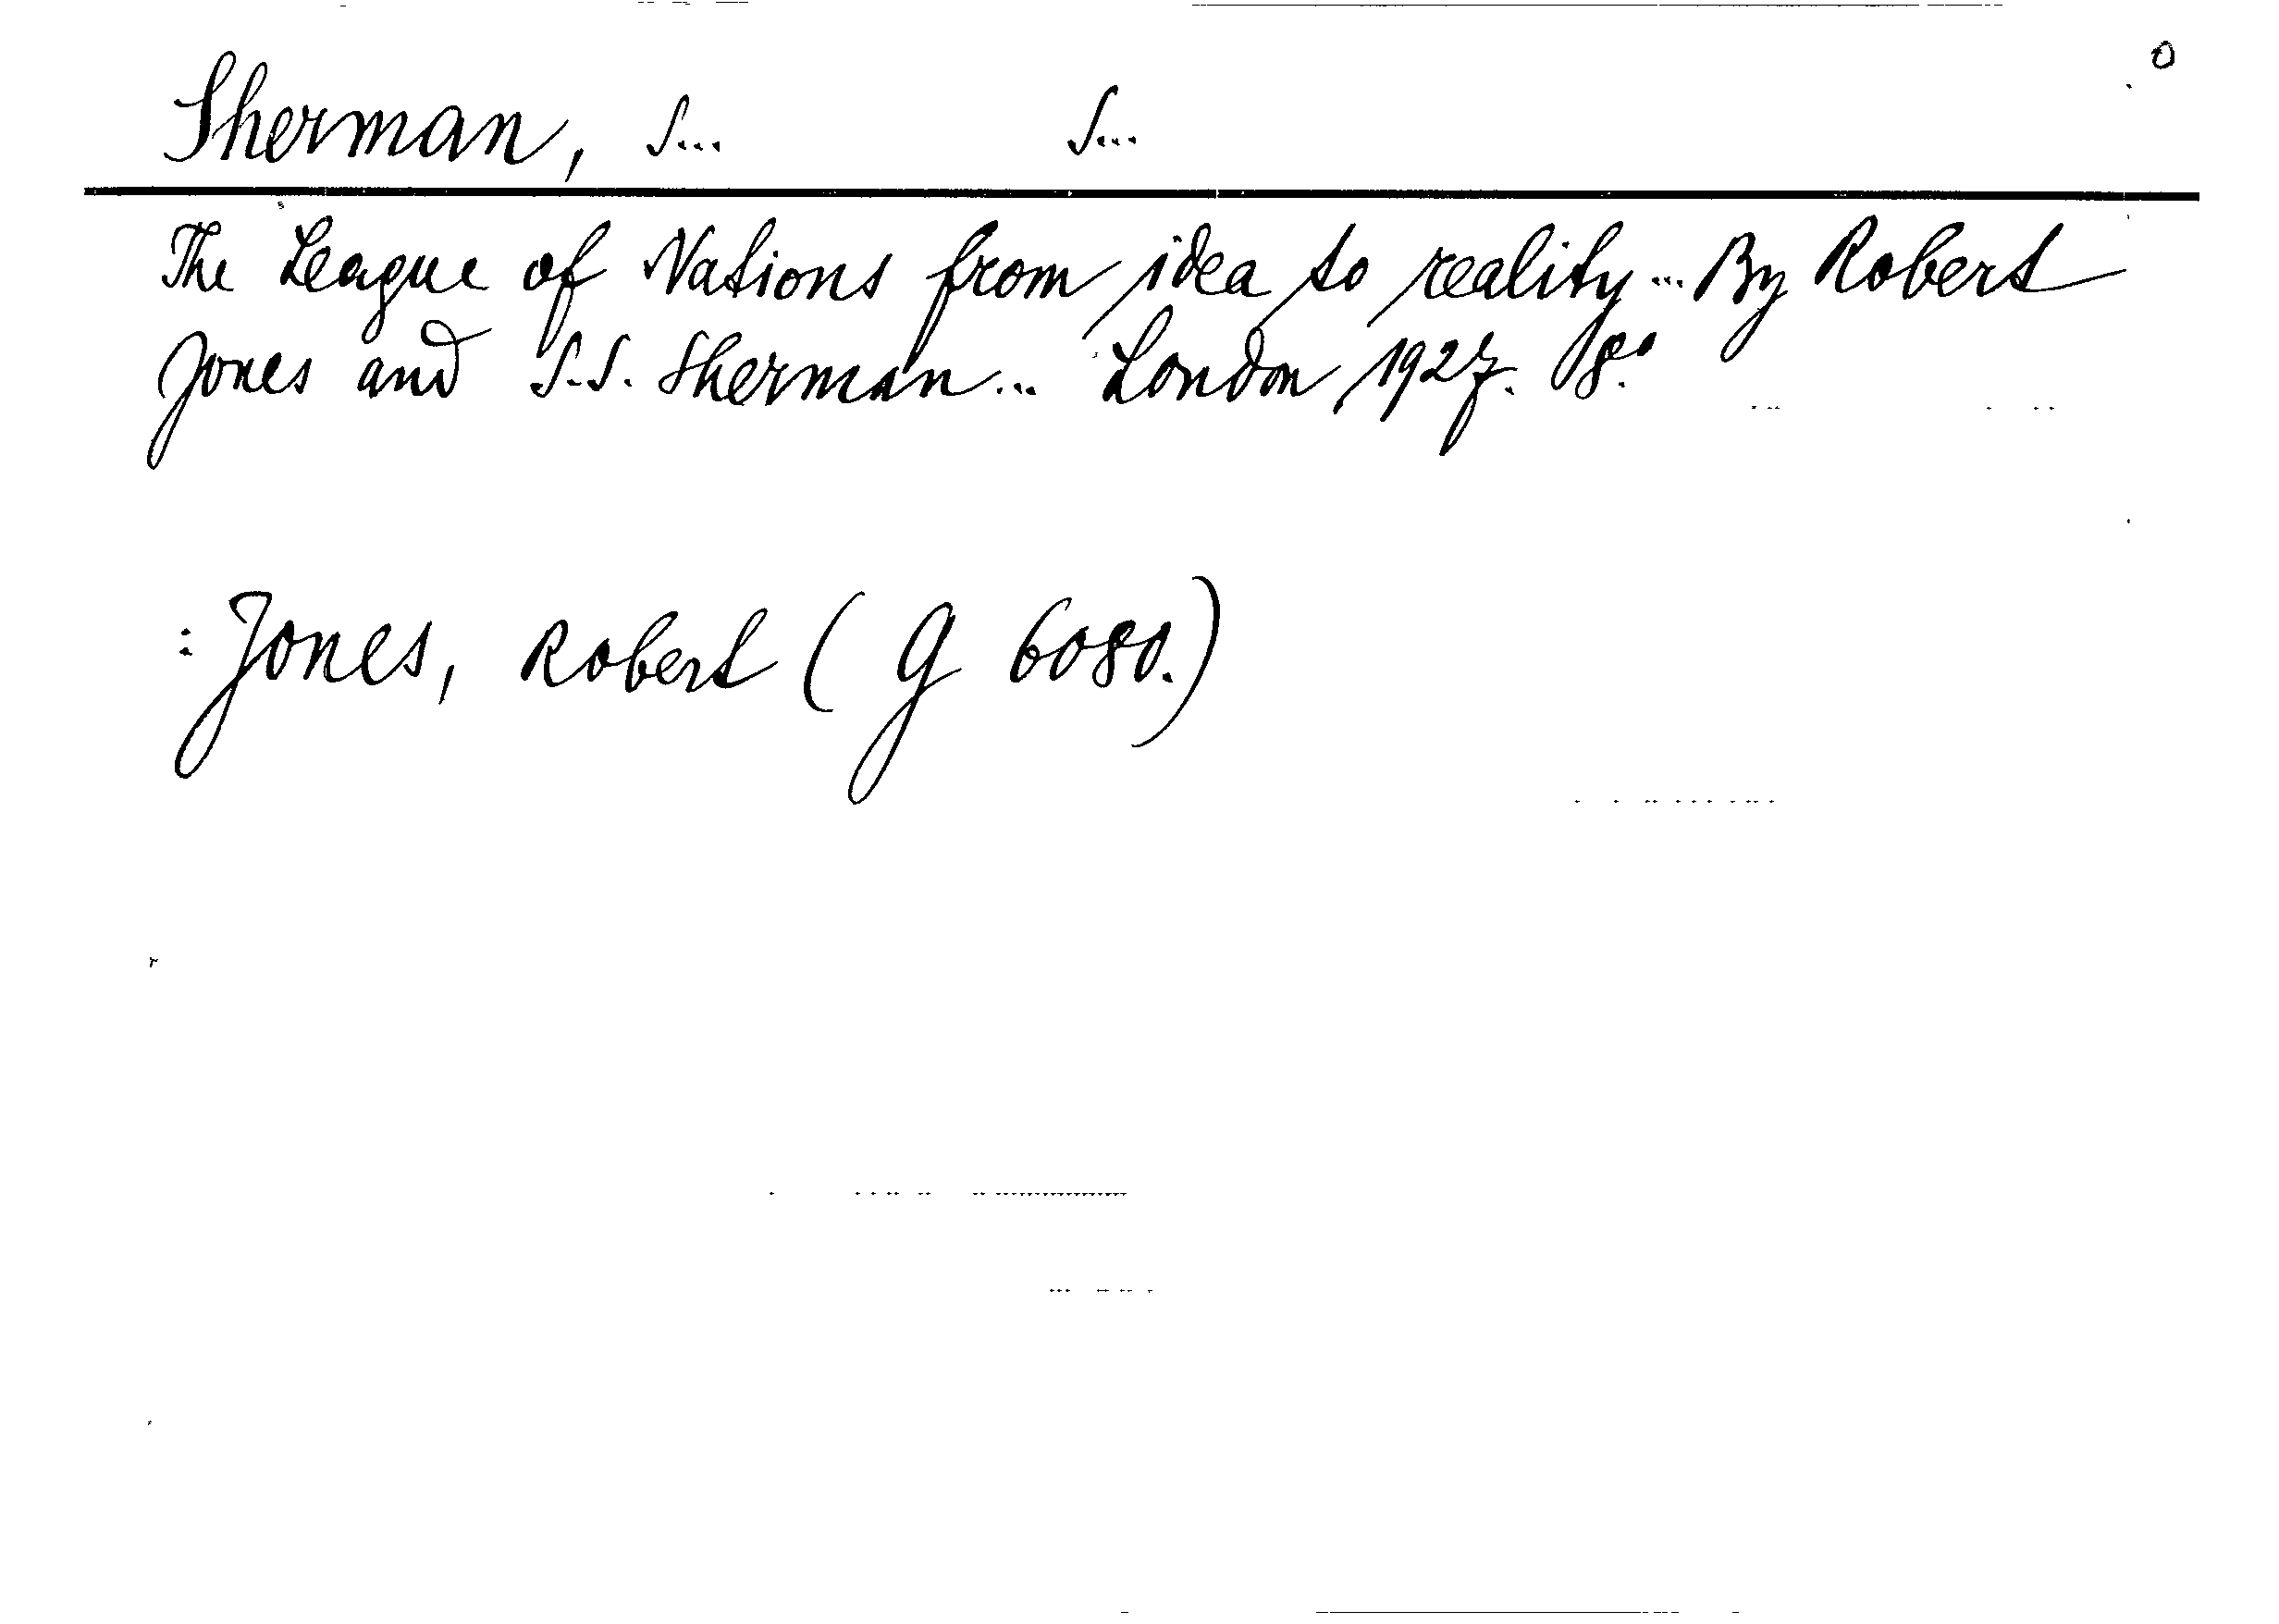 Sherman, S... S...
The League of Nations from idea to reality... By Robert
Jones and S.S. Sherman... London 1927. 8.°
: Jones, Robert (G 6080.)